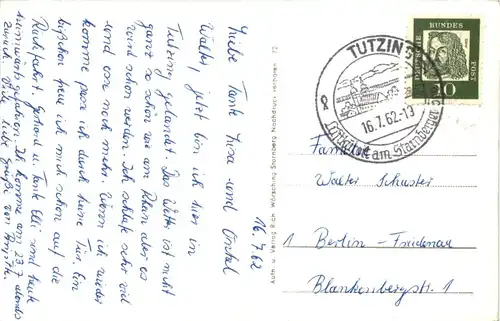 16.7.62
Liebe Tante Lisa und Onkel
Walter, jetzt bin ich hier in
Tutzing gelandet. Das Wetter ist nicht
ganz so schön wie am Rhein aber es
wird schon werden. Ich schlafe sehr viel
und esse noch mehr. Wenn ich wieder
komme passe ich durch keine Tür. Ein
bißchen freue ich mich schon auf die
Rückfahrt. Gertrud u. Tante Elli sind heute
gefahren. Ich komme am 23.7 abends
zurück. Viele liebe Grüße von
Auth. u. Verlag Rich. Wörsching Starnberg Nachdruck verboten 72
TUTZING
16.7.62-13
Luftkurort am Starnberger
DEUTSCHE
BUNDES
POST
20
Familie
Walter Schuster
1 Berlin-Friedenau
Blankenbergstr. 1